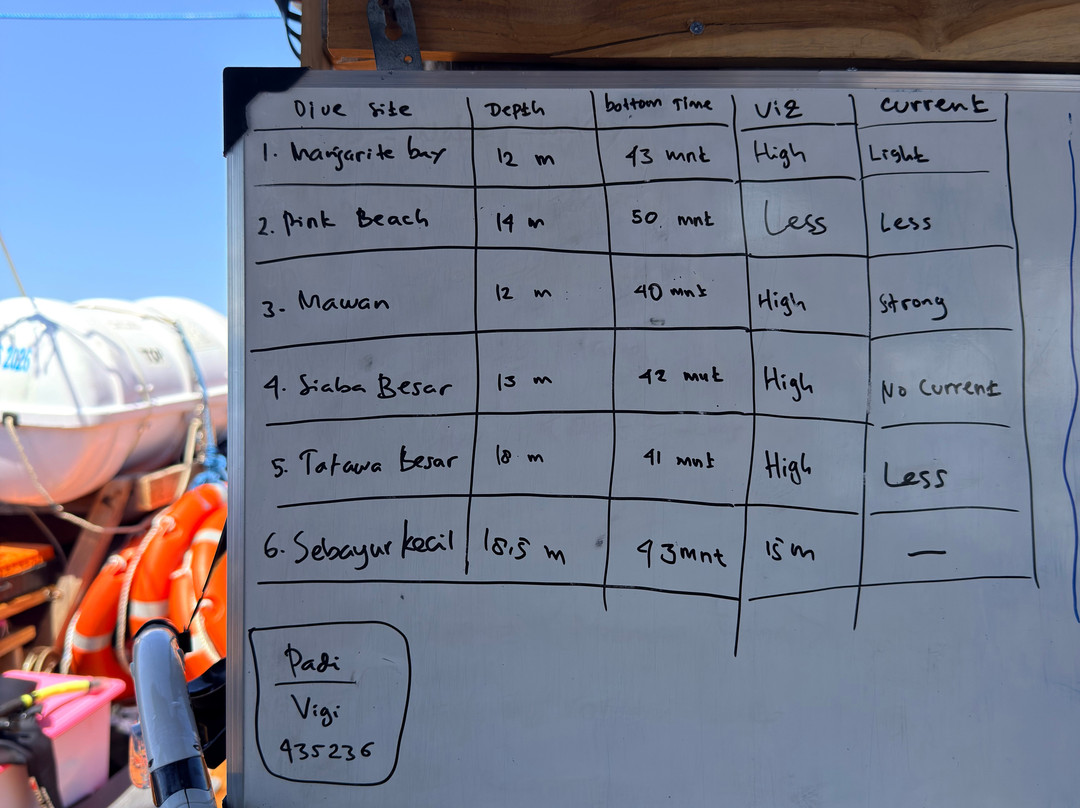 Dive Site Depth bottom Time Viz Current
1. Mangarite bay 12 m 43 mnt High Light
2. Pink Beach 14 m 50 mnt Less Less
3. Mawan 12 m 40 mnt High Strong
4. Siaba Besar 13 m 42 mnt High No Current
5. Tatawa Besar 18 m 41 mnt High Less
6. Sebayur kecil 18.5 m 43 mnt 15 m —
Padi
Vigi
435236
2026
TOP